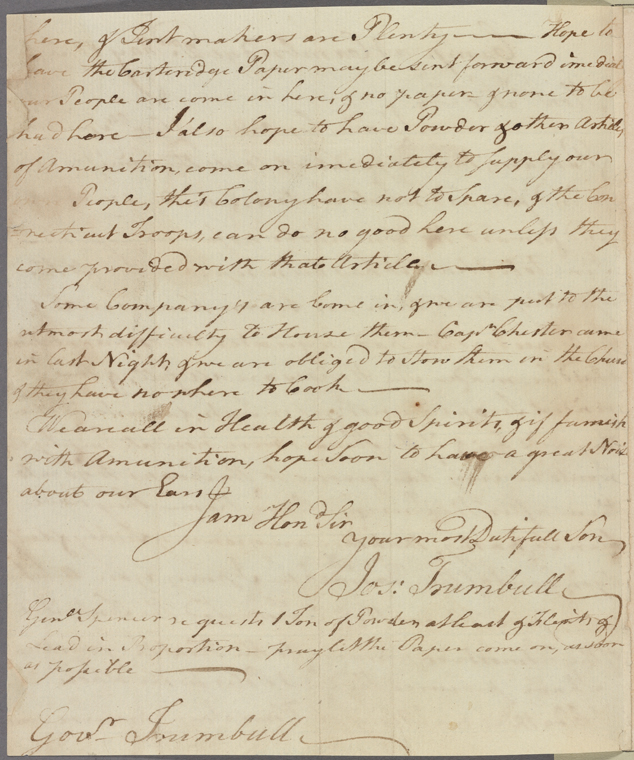 here, & Tent makers are Plenty — Hope to
have the Carteridge Paper may be sent forward imediat
our People are come in here, & no paper & none to be
had here — I also hope to have Powder & other Article
of Amunition, come on imediately to supply our
People, this Colony have not to Spare, & the Con
necticut Troops, can do no good here unless they
come provided with that Article —
Some Company's are Come in, & we are put to the
utmost difficulty to House them — Capt. Chester came
in last Night, & we are obliged to stow them in the Church
& they have no where to Cook —
We are all in Health & good Spirits, & if furnish
with Amunition, hope Soon to have a great Noise
about our Ears
I am Hond. Sir
your most Dutifull Son
Jos: Trumbull
Genl. Spencer requests 1 Ton of Powder at least & Flints &
Lead in Proportion — pray let the Paper come on, as soon
as possible —
Govr. Trumbull